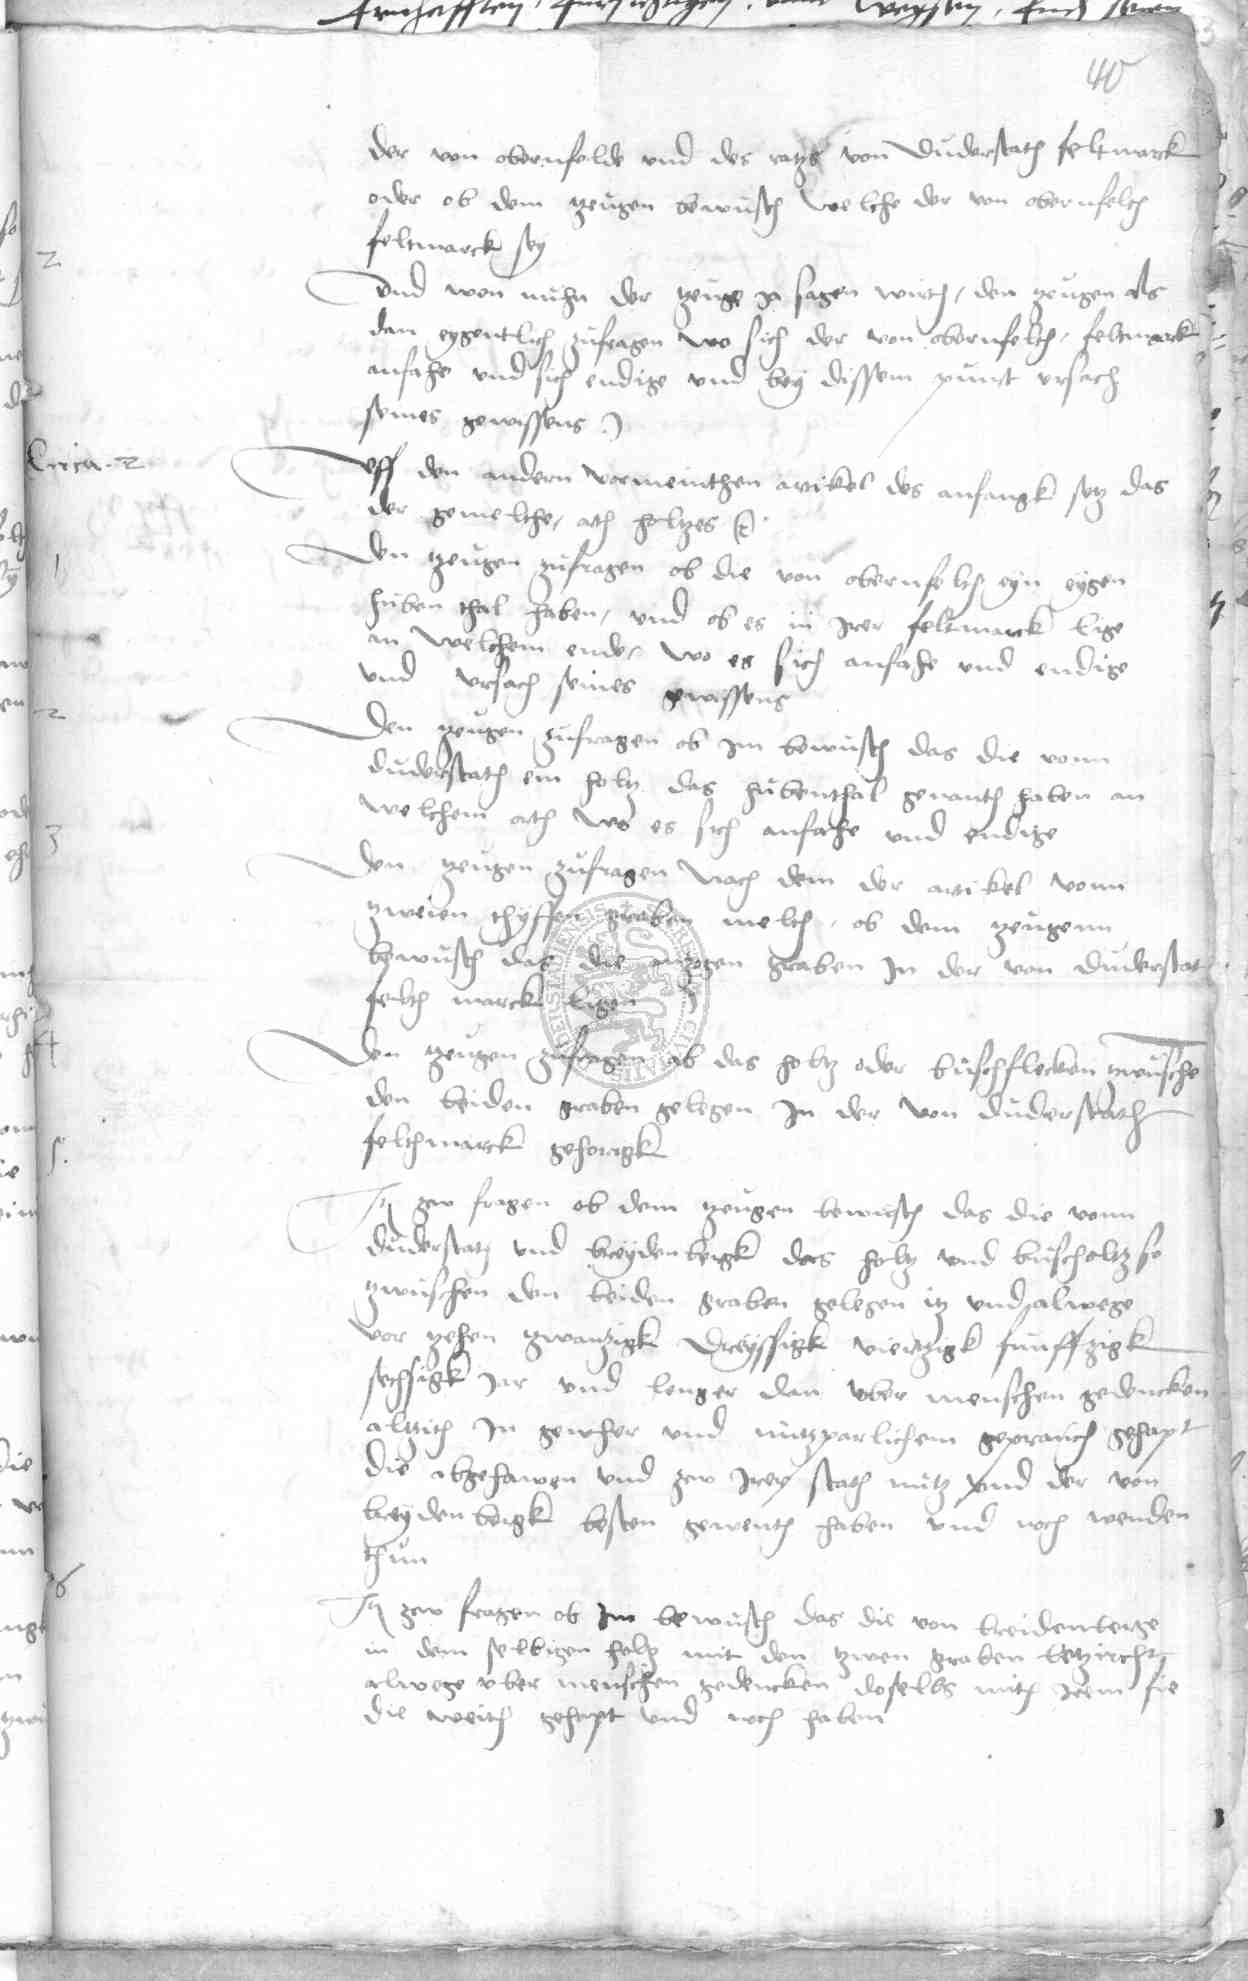 40
der von obernfelde vnd des ratzs von Duderstath feltmarck
oder ob dem zeugen bewusth welche der von obernfelth
feltmarck sey
2
Vnd wen nuhn der zeuge ja sagen wurth, den zeugen als
dan eygentlich zufragen wo sich der von obernfelth, feltmarck
anfahe vnd sich endige vnd bey dissem punct vrsach
seines gewissens
Circa 2
Vff den andern vormeinthen artikel des anfangk setz das
der gemelthe, arth holtzes
1
Den zeugen zufragen ob die von obernfelth eyn eygen
huben thal haben, vnd ob es in jrer feltmarck lige
an welchem ende, wo es sich anfahe vnd endige
vnd vrsach seines gewissens
2
Den zeugen zufragen ob jm bewusth das die vonn
duderstath ein holtz das hubenthal genanth haben an
welchem orth wo es sich anfahe vnd endige
3
Den zeugen zufragen Nach dem der artikel vonn
zweien thyffen graben melth, ob dem zeugenn
bewusth das die anzogen graben In der von duderstat
felth marck ligen
4
Den zeugen zufragen ob das holtz oder buschflecken zwusche
den beiden graben gelegen In der von duderstath
felthmarck gehorigk
5.
Jtem zew fragen ob dem zeugen bewusth das die vonn
duderstath vnd breydenbergk das holtz vnd buscholtz so
zwuschen den beiden graben gelegen itz vnd alwege
vor zehen zwanzigk dreyssigk viertzigk funffzigk
sechsigk jar vnd lenger dan vber menschen gedencken
altzith In gewher vnd nutzparlichem geprauch gehapt
die abgehawen vnd zew jrer stath nutz vnd der von
breydenbergk besten gewenth haben vnd noch wenden
thun
6
Jtem zew fragen ob jm bewusth das die von breidenberge
in dem selbigen holtz mit den zwen graben betzircht
alwege vber menschen gedencken doselbs mith jrem fie
die weith gehapt vnd noch haben